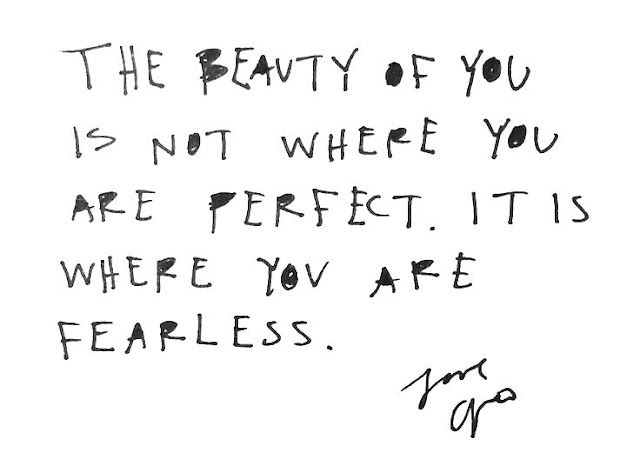 THE BEAUTY OF YOU
IS NOT WHERE YOU
ARE PERFECT. IT IS
WHERE YOU ARE
FEARLESS.
love